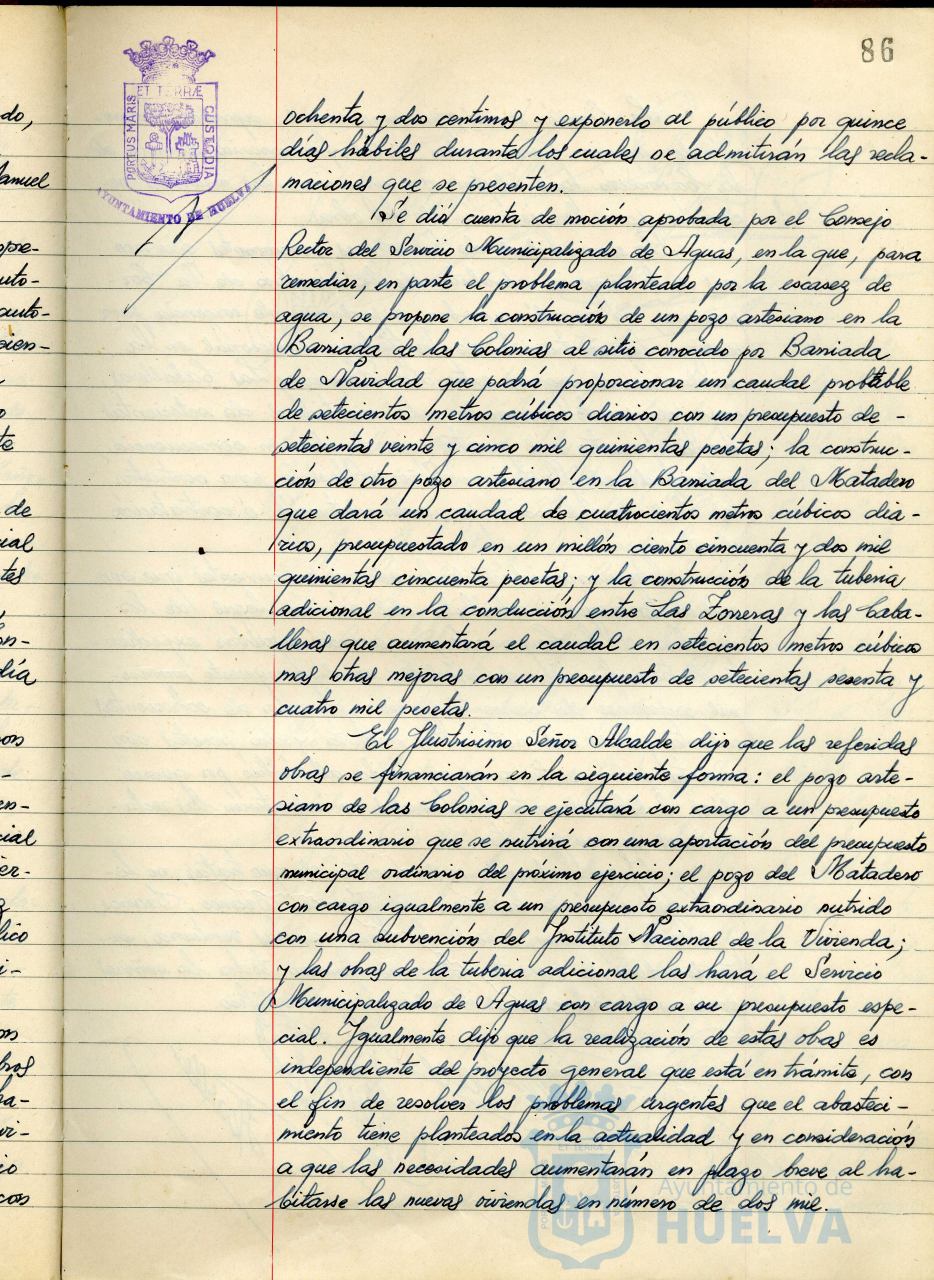 86
PORTUS MARIS ET TERRÆ CUSTODIA
AYUNTAMIENTO DE HUELVA
do,
anuel
pre-
uto-
auto-
sien-
te
de
cial
tes
en-
día
con
-
en-
cial
er-
lico
i-
on
bros
ha-
vi-
io
con
ochenta y dos centimos y exponerlo al público por quince
días hábiles durante los cuales se admitirán las recla-
maciones que se presenten.
Se dió cuenta de moción aprobada por el Consejo
Rector del Servicio Municipalizado de Aguas, en la que, para
remediar, en parte el problema planteado por la escasez de
agua, se propone la construcción de un pozo artesiano en la
Barriada de las Colonias al sitio conocido por Barriada
de Navidad que podrá proporcionar un caudal probable
de setecientos metros cúbicos diarios con un presupuesto de -
setecientas veinte y cinco mil quinientas pesetas; la construc-
ción de otro pozo artesiano en la Barriada del Matadero
que dará un caudad de cuatrocientos metros cúbicos dia-
rios, presupuestado en un millón ciento cincuenta y dos mil
quinientas cincuenta pesetas; y la construcción de la tuberia
adicional en la conducción entre Las Zorreras y las Caba-
lleras que aumentará el caudal en setecientos metros cúbicos
mas otras mejoras con un presupuesto de setecientas sesenta y
cuatro mil pesetas.
El Ilustrisimo Señor Alcalde dijo que las referidas
obras se financiarán en la siguiente forma: el pozo arte-
siano de las Colonias se ejecutará con cargo a un presupuesto
extraordinario que se nutrirá con una aportación del presupuesto
municipal ordinario del próximo ejercicio; el pozo del Matadero
con cargo igualmente a un presupuesto extraordinario nutrido
con una subvención del Instituto Nacional de la Vivienda;
y las obras de la tuberia adicional las hará el Servicio
Municipalizado de Aguas con cargo a su presupuesto espe-
cial. Igualmente dijo que la realización de estas obras es
independiente del proyecto general que está en trámite, con
el fin de resolver los problemas urgentes que el abasteci-
miento tiene planteados en la actualidad y en consideración
a que las necesidades aumentarán en plazo breve al ha-
bitarse las nuevas viviendas en número de dos mil.
Ayuntamiento de
HUELVA